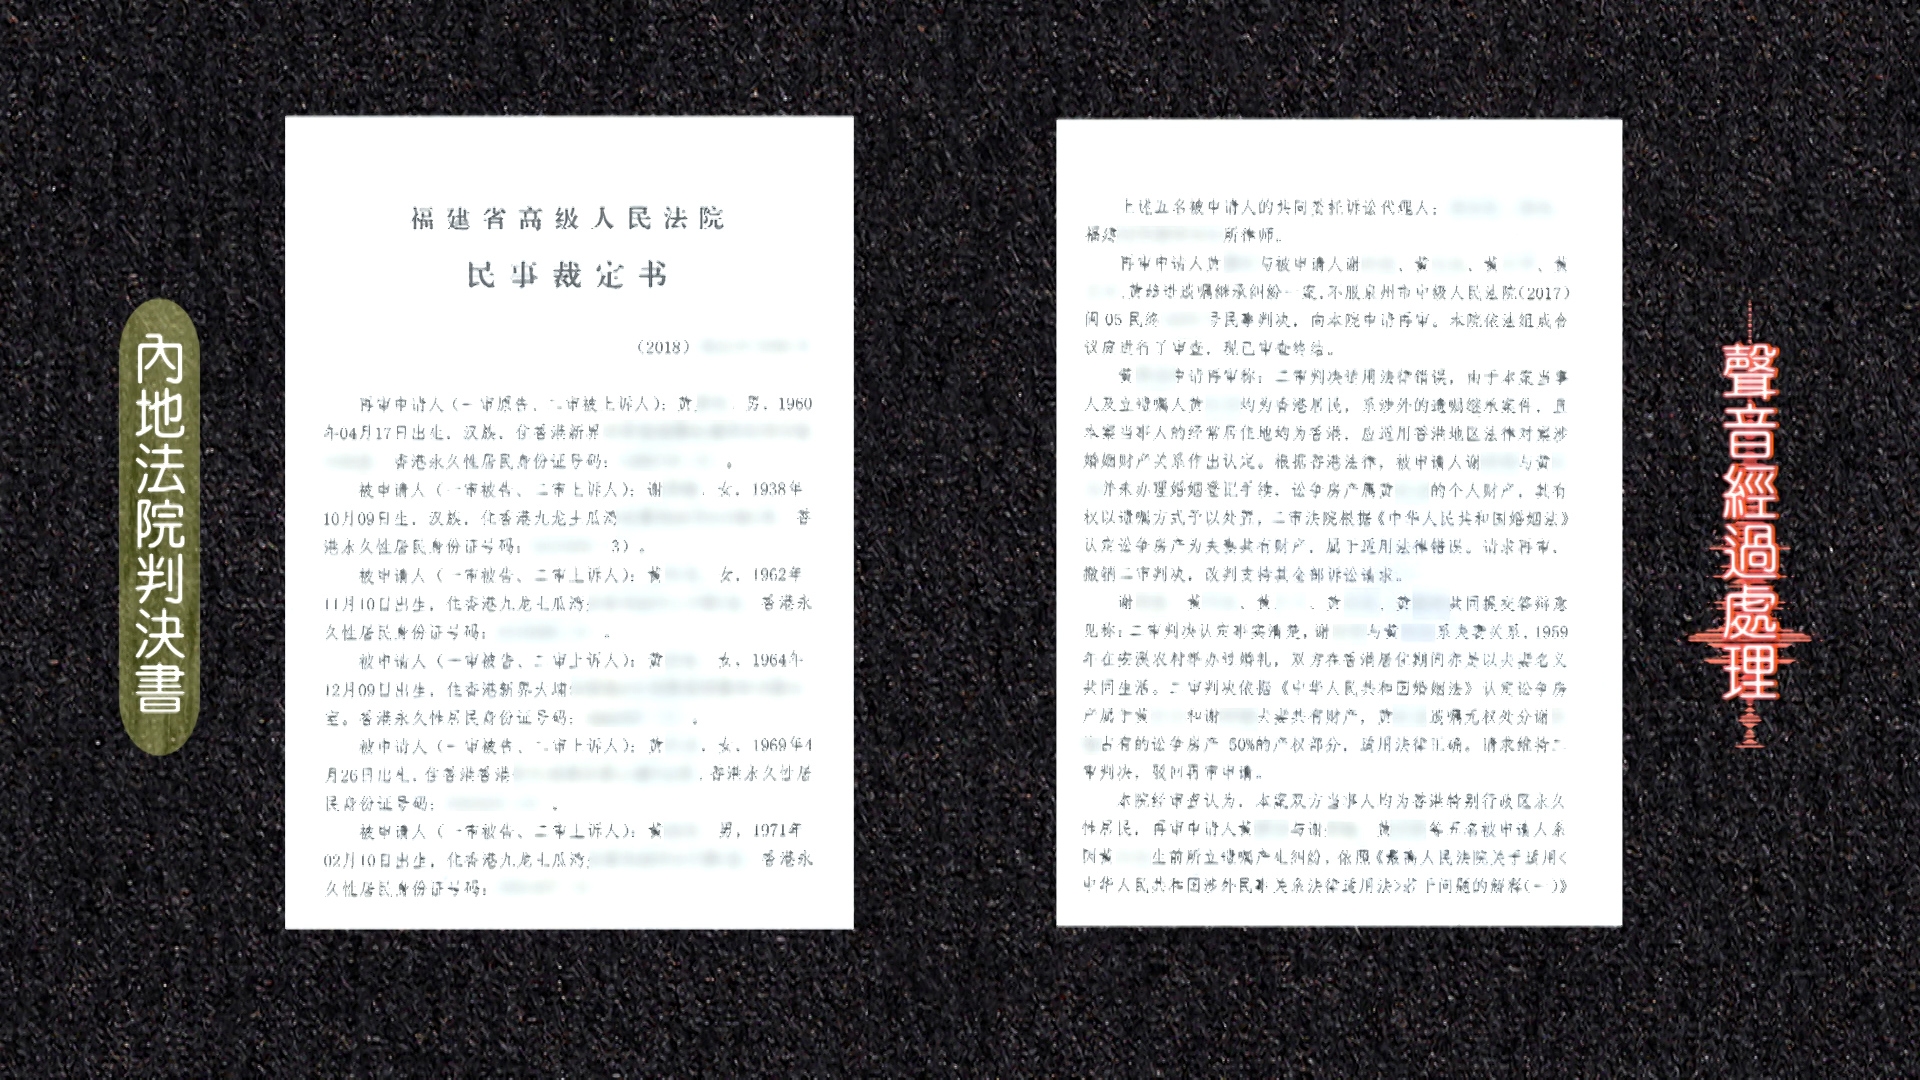 內地法院判決書
福建省高级人民法院
民事裁定书
(2018)
再审申请人(一审原告、二审被上诉人):黄 男,1960
年04月17日出生,汉族,住香港新界
香港永久性居民身份证号码: 。
被申请人(一审被告、二审上诉人):谢 ,女,1938年
10月09日生,汉族,住香港九龙土瓜湾 香
港永久性居民身份证号码: 3)。
被申请人(一审被告、二审上诉人):黄 女,1962年
11月10日出生,住香港九龙土瓜湾 香港永
久性居民身份证号码: 。
被申请人(一审被告、二审上诉人):黄 女,1964年
12月09日出生,住香港新界大埔
室。香港永久性居民身份证号码: 。
被申请人(一审被告、二审上诉人):黄 ,女,1969年4
月26日出生,住香港香港 ,香港永久性居
民身份证号码: 。
被申请人(一审被告、二审上诉人):黄 男,1971年
02月10日出生,住香港九龙土瓜湾 香港永
久性居民身份证号码:
上述五名被申请人的共同委托诉讼代理人:
福建 所律师。
再审申请人黄 与被申请人谢 、黄 、黄 、黄
遗嘱继承纠纷一案,不服泉州市中级人民法院(2017)
闽05民终 号民事判决,向本院申请再审。本院依法组成合
议庭进行了审查,现已审查终结。
黄 申请再审称:二审判决适用法律错误,由于本案当事
人及立遗嘱人黄 均为香港居民,系涉外的遗嘱继承案件,且
本案当事人的经常居住地均为香港,应适用香港地区法律对案涉
婚姻财产关系作出认定。根据香港法律,被申请人谢 与黄
并未办理婚姻登记手续,讼争房产属黄 的个人财产,其有
权以遗嘱方式予以处置,二审法院根据《中华人民共和国婚姻法》
认定讼争房产为夫妻共有财产,属于适用法律错误。请求再审,
撤销二审判决,改判支持其全部诉讼请求。
谢 黄 、黄 、黄 、黄 共同提交答辩意
见称:二审判决认定事实清楚,谢 与黄 系夫妻关系,1959
年在安溪农村举办过婚礼,双方在香港居住期间亦是以夫妻名义
共同生活。二审判决依据《中华人民共和国婚姻法》认定讼争房
产属于黄 和谢 夫妻共有财产,黄 遗嘱无权处分谢
占有的讼争房产50%的产权部分,适用法律正确。请求维持二
审判决,驳回再审申请。
本院经审查认为,本案双方当事人均为香港特别行政区永久
性居民,再审申请人黄 与谢 黄 等五名被申请人系
因黄 生前所立遗嘱产生纠纷,依照《最高人民法院关于适用<
中华人民共和国涉外民事关系法律适用法>若干问题的解释(一)》
聲音經過處理